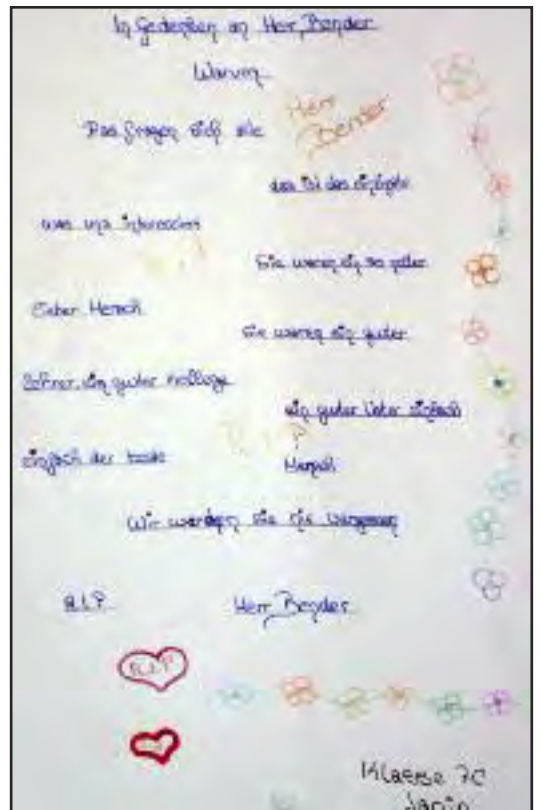 In Gedenken an Herr Bender
Warum
Herr
Bender
Das fragen sich alle
das ist das einzigste
was uns interessiert
Sie waren ein so guter
lieber Mensch
Sie waren ein guter
Lehrer, ein guter Kollege
ein guter Vater einfach
R.I.P
einfach der beste
Mensch
Wir werden sie nie vergessen
R.I.P.
Herr Bender
R.I.P
Klasse 7C
Janin